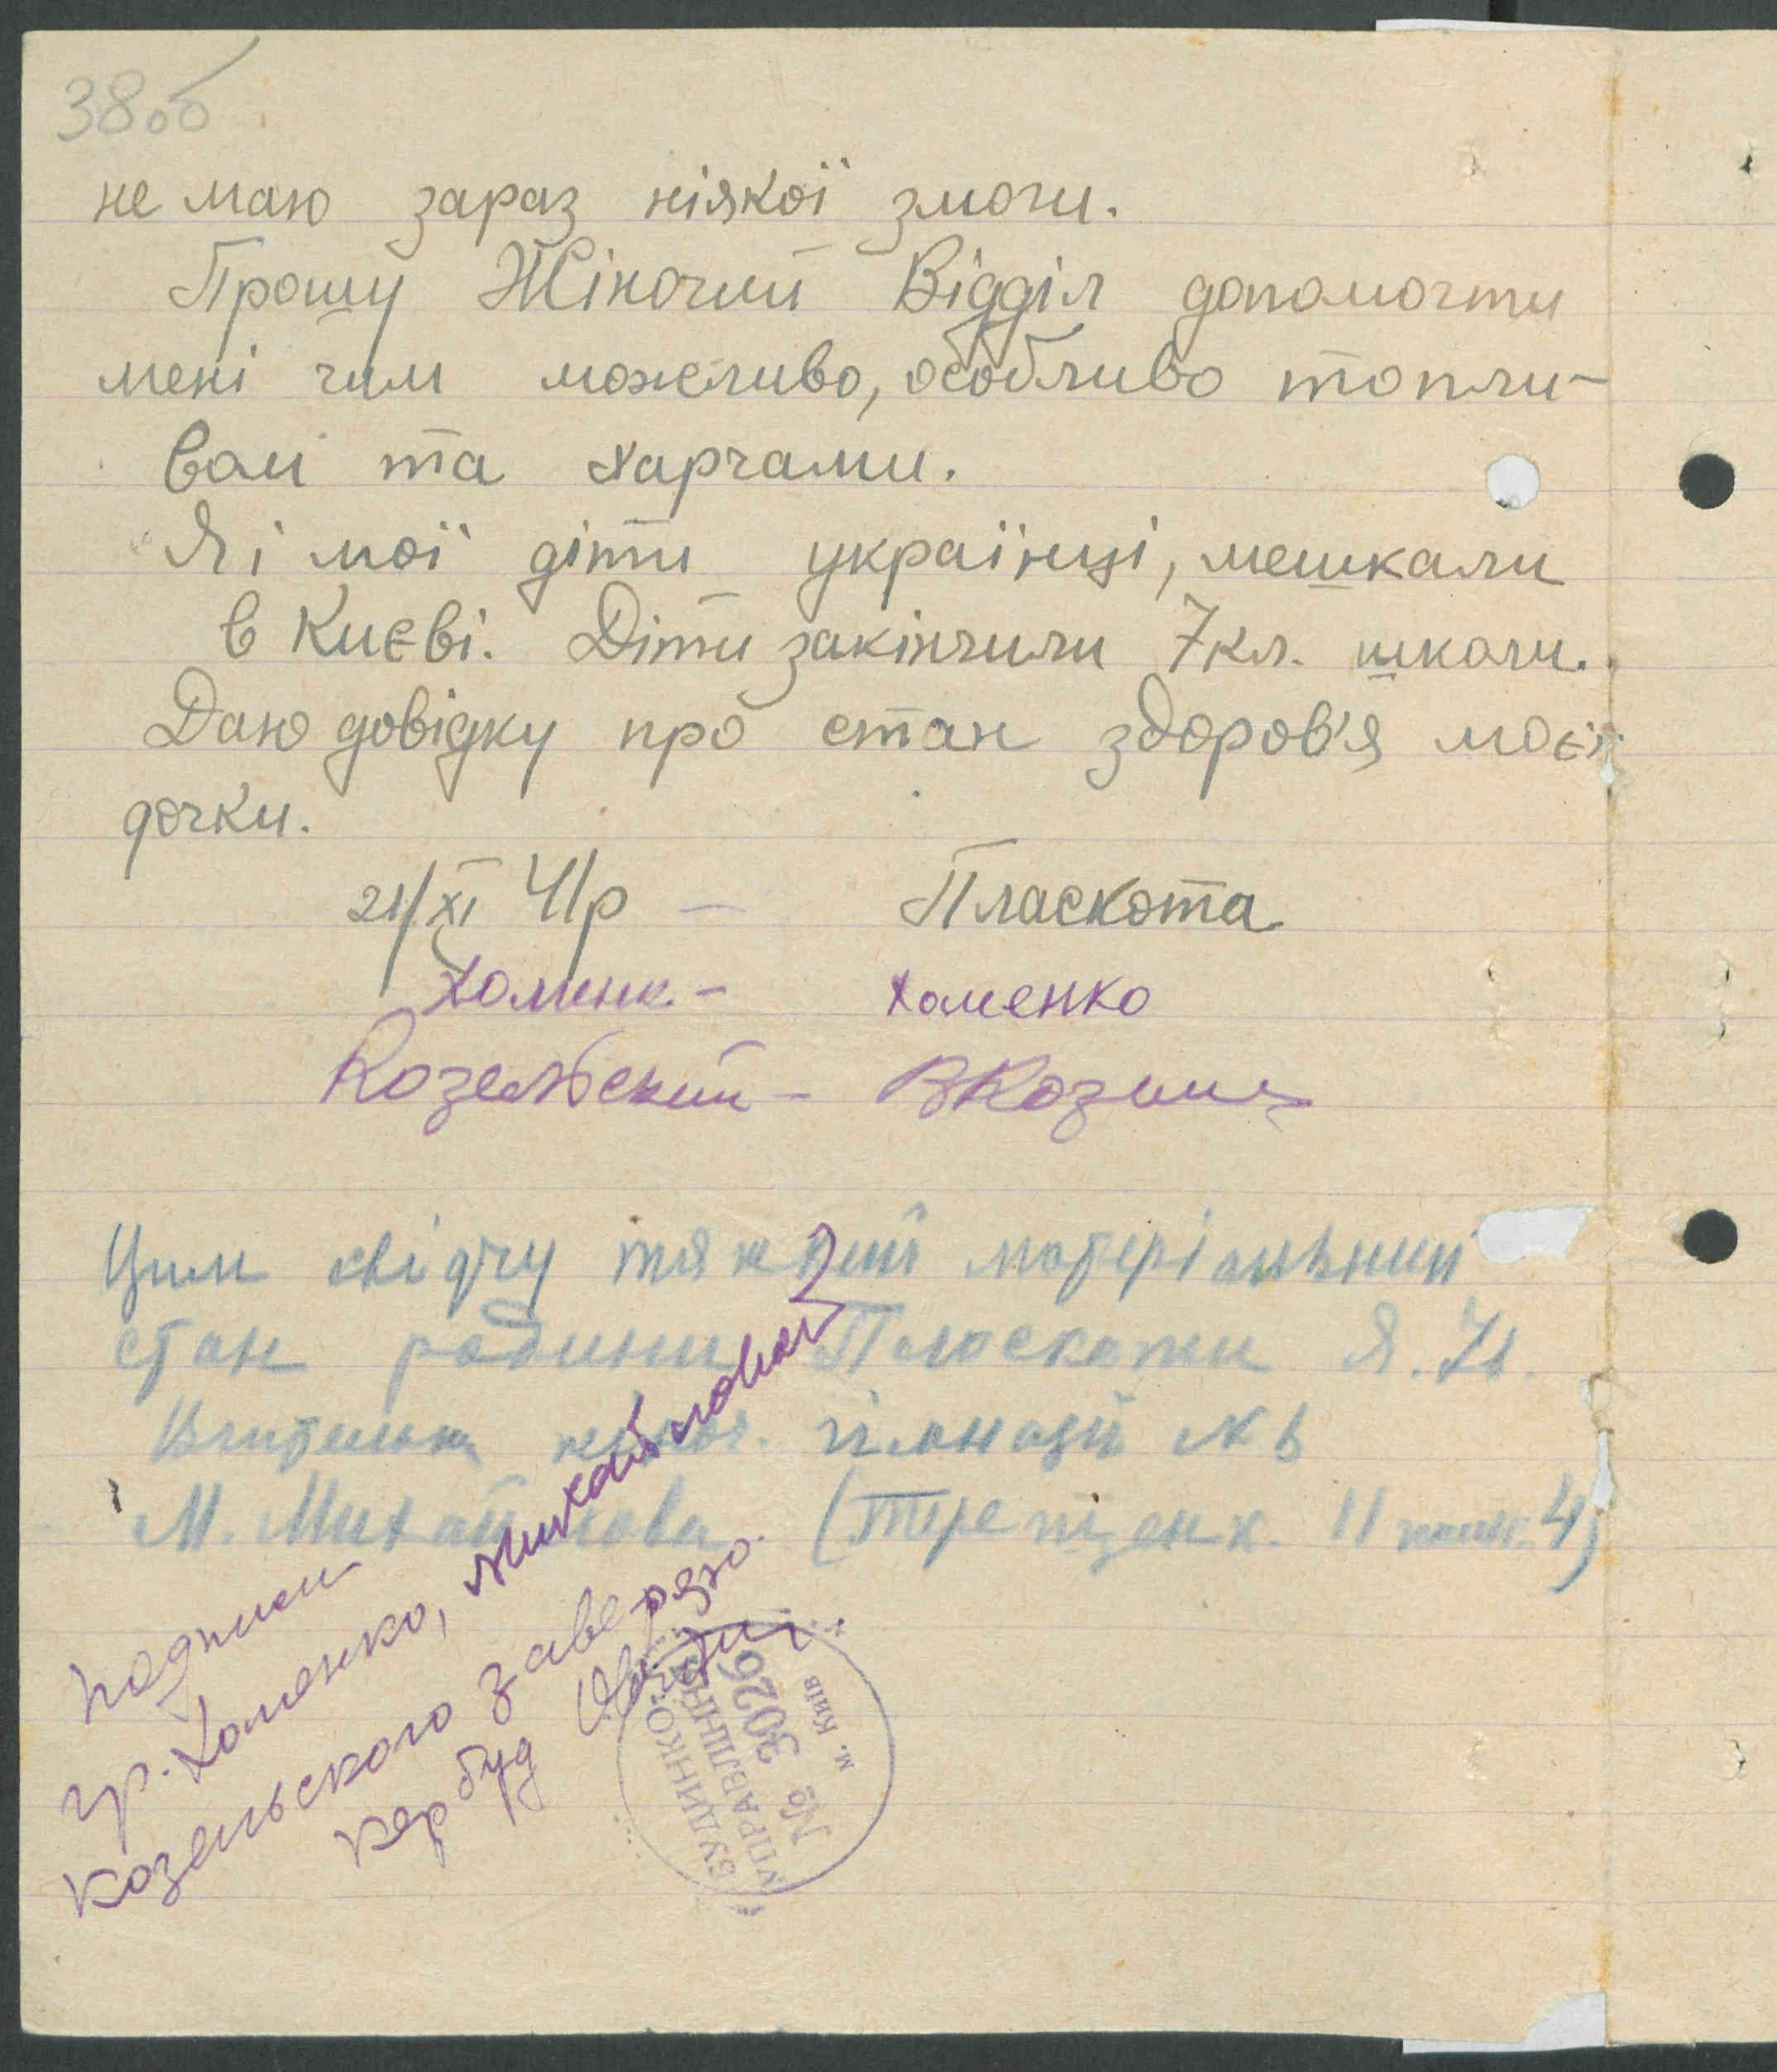 38об
не маю зараз ніякої змоги.
Прошу Жіночий Відділ допомогти
мені чим можливо, особливо топли-
вом та харчами.
Я і мої діти українці, мешкали
в Києві. Діти закінчили 7 кл. школи.
Даю довідку про стан здоров'я моєї
дочки.
21/XI 41р — Пласкота
Хоменк. - Хоменко
Козельский - ВКозель
Цим свідчу тяжкий матеріальний
стан родини Пласкоти Я.
гімназії № 6
М. Михайлова (Терещенк. 11 пом. 4)
Подписи
гр. Хоменко, Михайловой
Козельского заверяю.
Кербуд
БУДИНКО-
УПРАВЛІННЯ
№ 3026
м. Київ